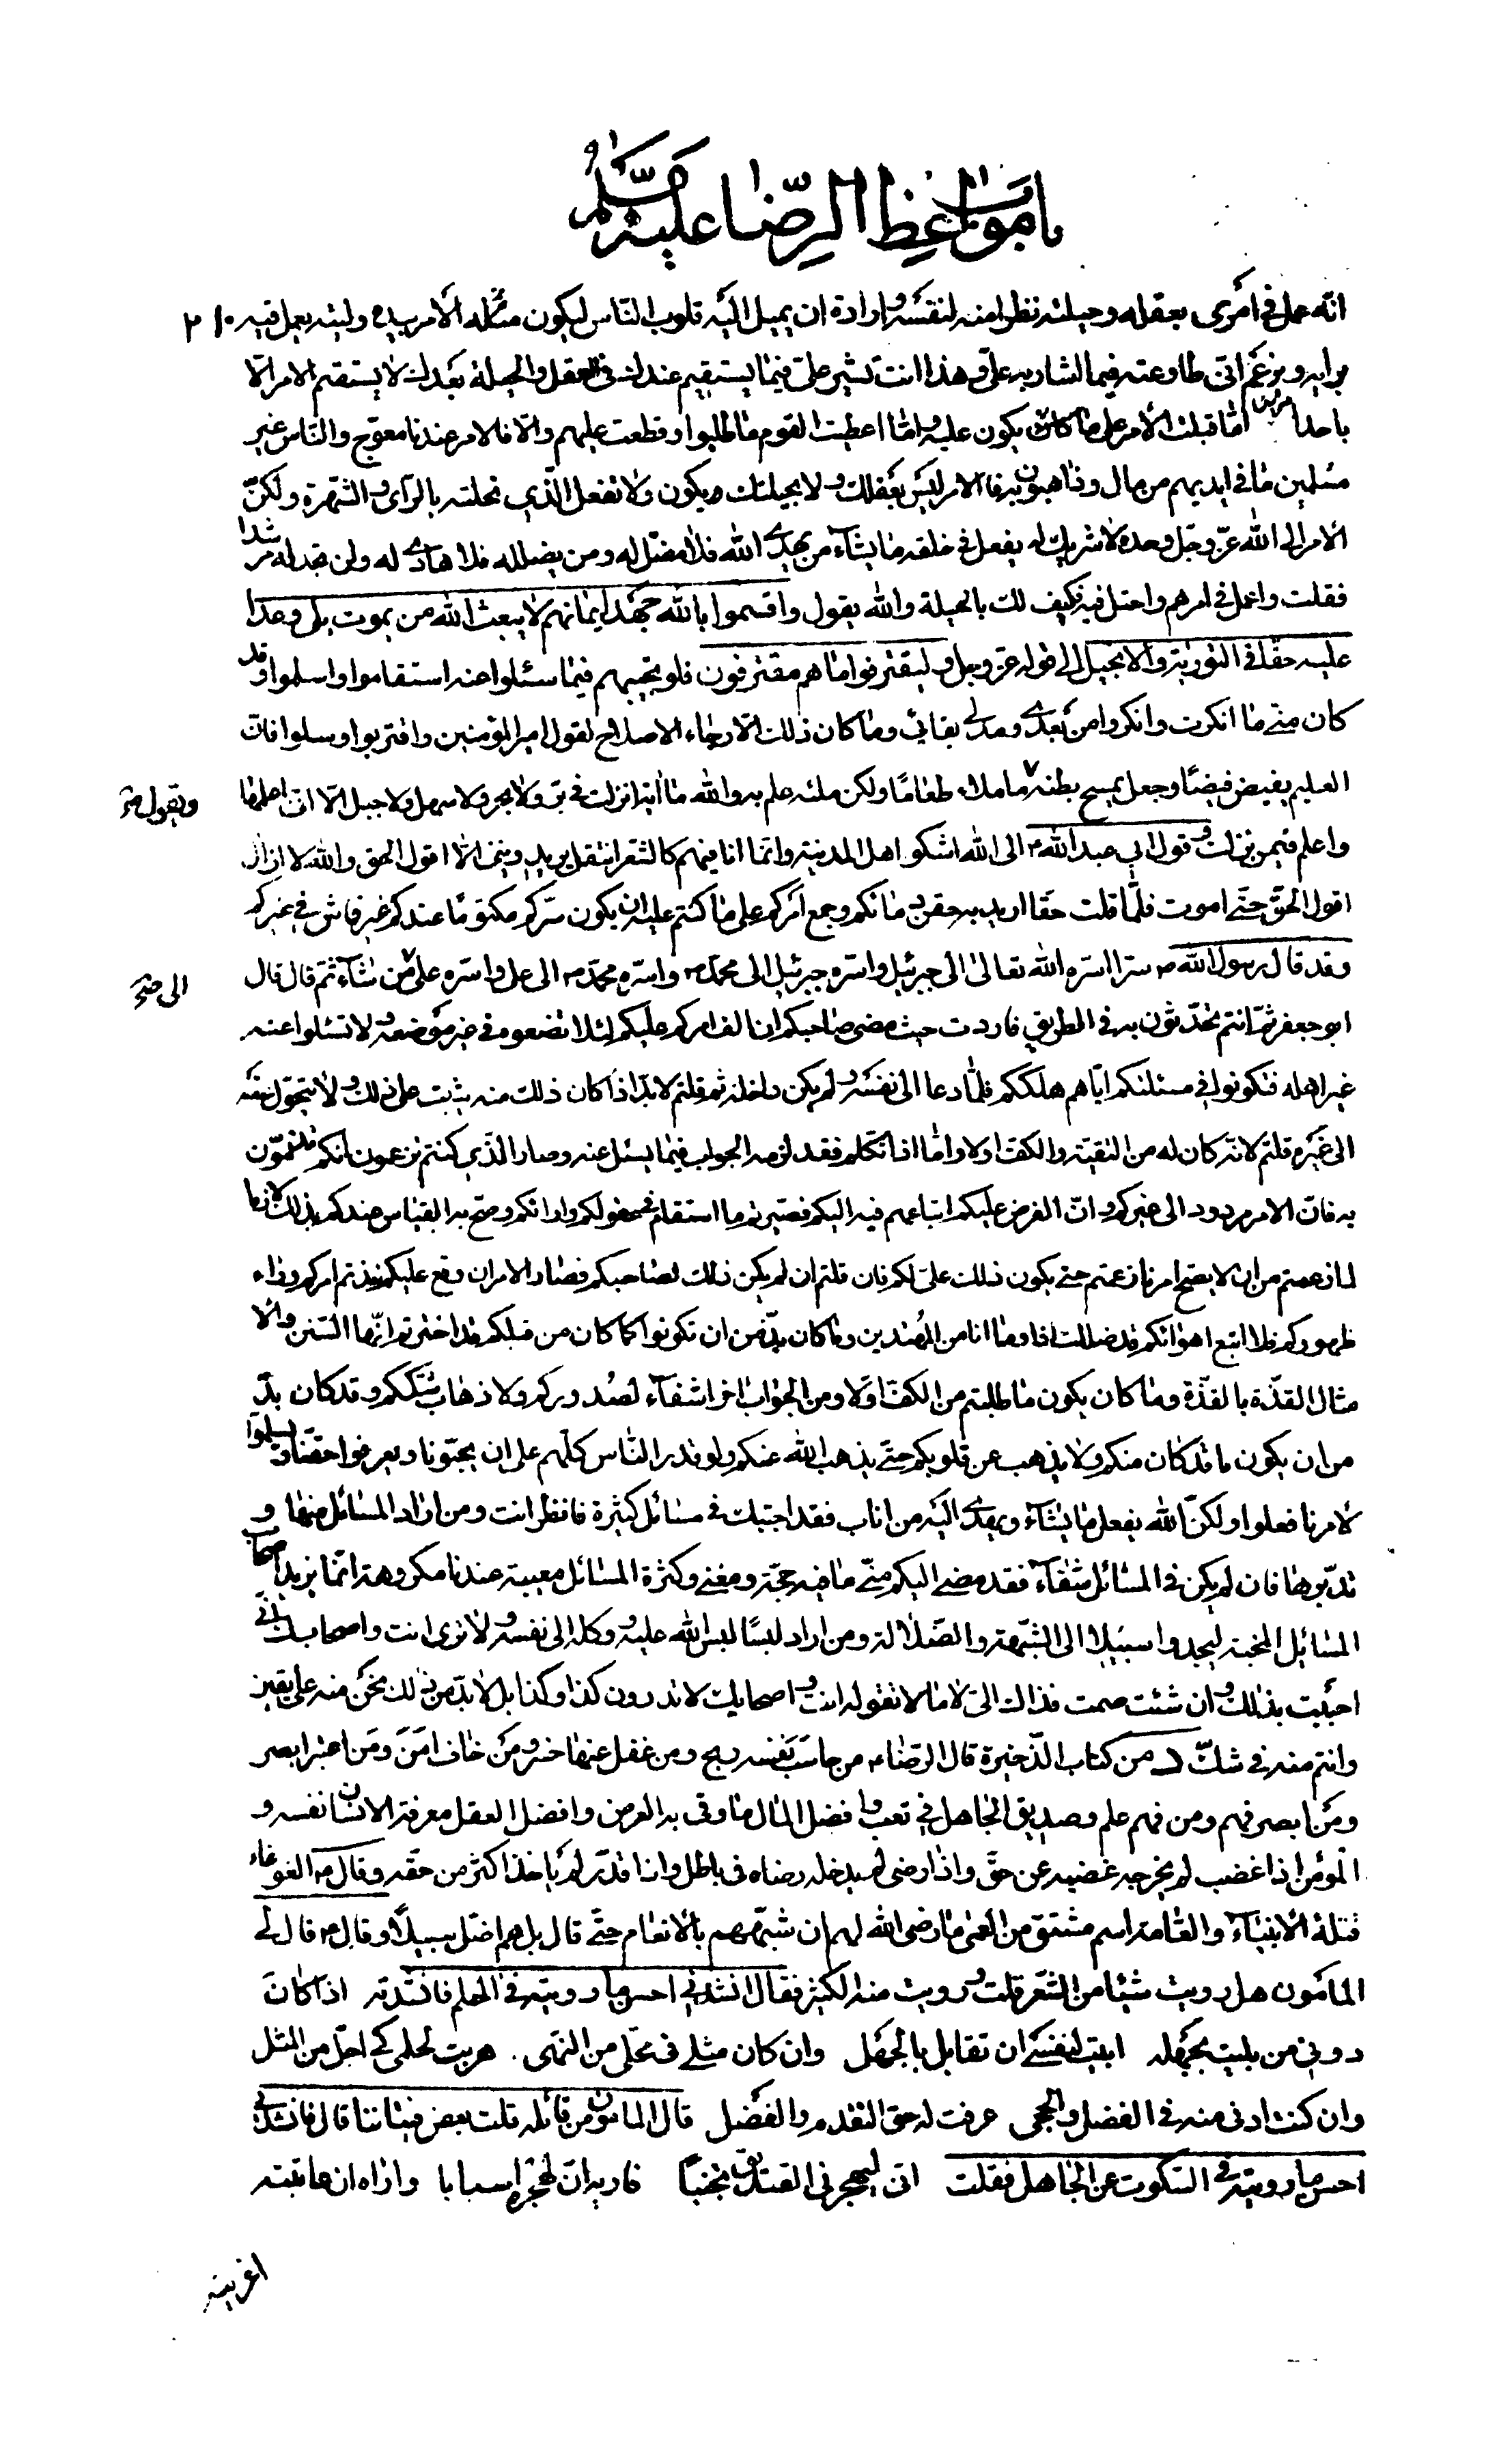 باب مواعظ الرضا عليه السلام
انه عمل في امري بعقله وحيلته نظرا منه لنفسه وارادة ان يميل اليه قلوب الناس ليكون مثله الامر بيده وليته يعمل فيه ٢١٠
برايه ويزعم اني طاوعته فيما اشار به علي وهذا انت تشير علي فيما يستقيم عندك في العقل والحيلة بعدك لا يستقيم الامر الا
باحد امرين اما قبلت الامر على ما كان يكون عليه واما اعطيت القوم ما طلبوا وقطعت عليهم والا فالامر عندنا معوج والناس غير
مسلمين ما في ايديهم من مال وذاهبون به فالامر ليس بعقلك ولا بحيلتك يكون ولا تفعل الذي نحلته بالراي والشهرة ولكن
الامر الى الله عز وجل وحده لا شريك له يفعل في خلقه ما يشاء من يهدي الله فلا مضل له ومن يضلله فلا هادي له ولن تجد له مرشدا
فقلت واعمل في امرهم واحتل فيه فكيف لك بالحيلة والله يقول واقسموا بالله جهد ايمانهم لا يبعث الله من يموت بلى وعدا
عليه حقا في التورية والانجيل الى قوله عز وجل وليقترفوا ما هم مقترفون فلو تجيبهم فيما سئلوا عنه استقاموا واسلموا وقد
كان مني ما انكرت وانكروا من بعدي ومد لي بقائي وما كان ذلك الا رجاء الاصلاح لقول امير المؤمنين واقتربوا وسلوا فان
العلم يفيض فيضا وجعل يمسح بطنه ويقول ما ملاء طعاما ولكن ملئه علم والله ما اية انزلت في بر ولا بحر ولا سهل ولا جبل الا اني اعلمها
واعلم فيمن نزلت وقول ابي عبد الله الى الله اشكو اهل المدينة وانما انا فيهم كالشعر انتقل يريدونني الا اقول الحق والله لا ازال
اقول الحق حتى اموت فلما قلت حقا اريد به حقن دمائكم وجمع امركم على ما كنتم عليه ان يكون سركم مكتوما عندكم غير فاش في غيركم
وقد قال رسول الله ص سرا اسره الله تعالى الى جبرئيل واسره جبرئيل الى محمد ص واسره محمد ص الى علي واسره علي الى من شاء ثم قال قال
ابو جعفر ثم انتم تحدثون به في الطريق فاردت حيث مضى صاحبكم ان الف امركم عليكم لئلا تضعوه في غير موضعه ولا تسئلوا عنه
غير اهله فتكونوا في مسئلتكم اياهم هلكتم فلما دعا الى نفسه ولم يكن داخله ثم قلتم لابد اذا كان ذلك منه يثبت على ذلك ولا يتحول عنه
الى غيره قلتم لانه كان له من التقية والكف اولا واما اذا تكلم فقد لزمه الجواب فيما يسئل عنه وصار الذي كنتم تزعمون انكم تذمون
به فان الامر مردود الى غيركم وان الفرض عليكم اتباعهم فيه اليكم فصيرتم ما استقام في عقولكم وارائكم وصح به القياس عندكم بذلك لازما
لما زعمتم من ان لا يصح امرنا زعمتم حتى يكون ذلك علي لكم فان قلتم ان لم يكن ذلك لصاحبكم فصار الامر ان وقع اليكم نبذتم امر ربكم وراء
ظهوركم فلا اتبع اهوائكم قد ضللت اذا وما انا من المهتدين وما كان بد من ان تكونوا كما كان من قبلكم قد اخبرتم انها السنن والا
مثال القذة بالقذة وما كان يكون ما طلبتم من الكف اولا ومن الجواب اخرا شفاء لصدوركم ولا ذهاب شككم وقد كان بد
من ان يكون ما قد كان منكم ولا يذهب عن قلوبكم حتى يذهب الله عنكم ولو قدر الناس كلهم على ان يحبونا ويعرفوا حقنا ويسلموا
لامرنا فعلوا ولكن الله يفعل ما يشاء ويهدي اليه من اناب فقد اجبتك في مسائل كثيرة فانظر انت ومن اراد المسائل منها و
تدبروها فان لم يكن في المسائل شفاء فقد مضى اليكم مني ما فيه حجة ومغنى وكثرة المسائل معيبة عندنا مكروهة انما يريد اصحاب
المسائل المحنة ليجدوا سبيلا الى الشبهة والضلالة ومن اراد لبسا لبس الله عليه ووكله الى نفسه ولا ترى انت واصحابك اني
اجبت بذلك وان شئت صمت فذاك الي لا ما تقوله انت واصحابك لا تدرون كذا وكذا بل لابد من ذلك نحن منه على يقين
وانتم منه في شك د من كتاب الذخيرة قال الرضاء من حاسب نفسه ربح ومن غفل عنها خسر ومن خاف امن ومن اعتبر ابصر
ومن ابصر فهم ومن فهم علم وصديق الجاهل في تعب وافضل المال ما وقى به العرض وافضل العقل معرفة الانسان نفسه و
المؤمن اذا غضب لم يخرجه غضبه عن حق واذا رضى لم يدخله رضاه في باطل واذا قدر لم ياخذ اكثر من حقه وقال ع الغوغاء
قتلة الانبياء والعامة اسم مشتق من العمى ما رضى الله لهم ان شبههم بالانعام حتى قال بل هم اضل سبيلا وقال ع قال لي
المأمون هل رويت شيئا من الشعر قلت ورويت منه الكثير فقال انشدني احسن ما رويته في الحلم فانشدته اذا كان
دوني من بليت بجهله ابيت لنفسي ان تقابل بالجهل وان كان مثلي في محلي من النهى هربت لحلمي كي اجل من المثل
وان كنت ادنى منه في الفضل والحجى عرفت له حق التقدم والفضل قال المامون من قائله قلت بعض فتياننا قال فانشدني
احسن ما رويته في السكوت عن الجاهل فقلت اني ليهجرني الصديق تجنبا فاريه ان لهجره اسبابا واراه ان عاتبته
اغريته